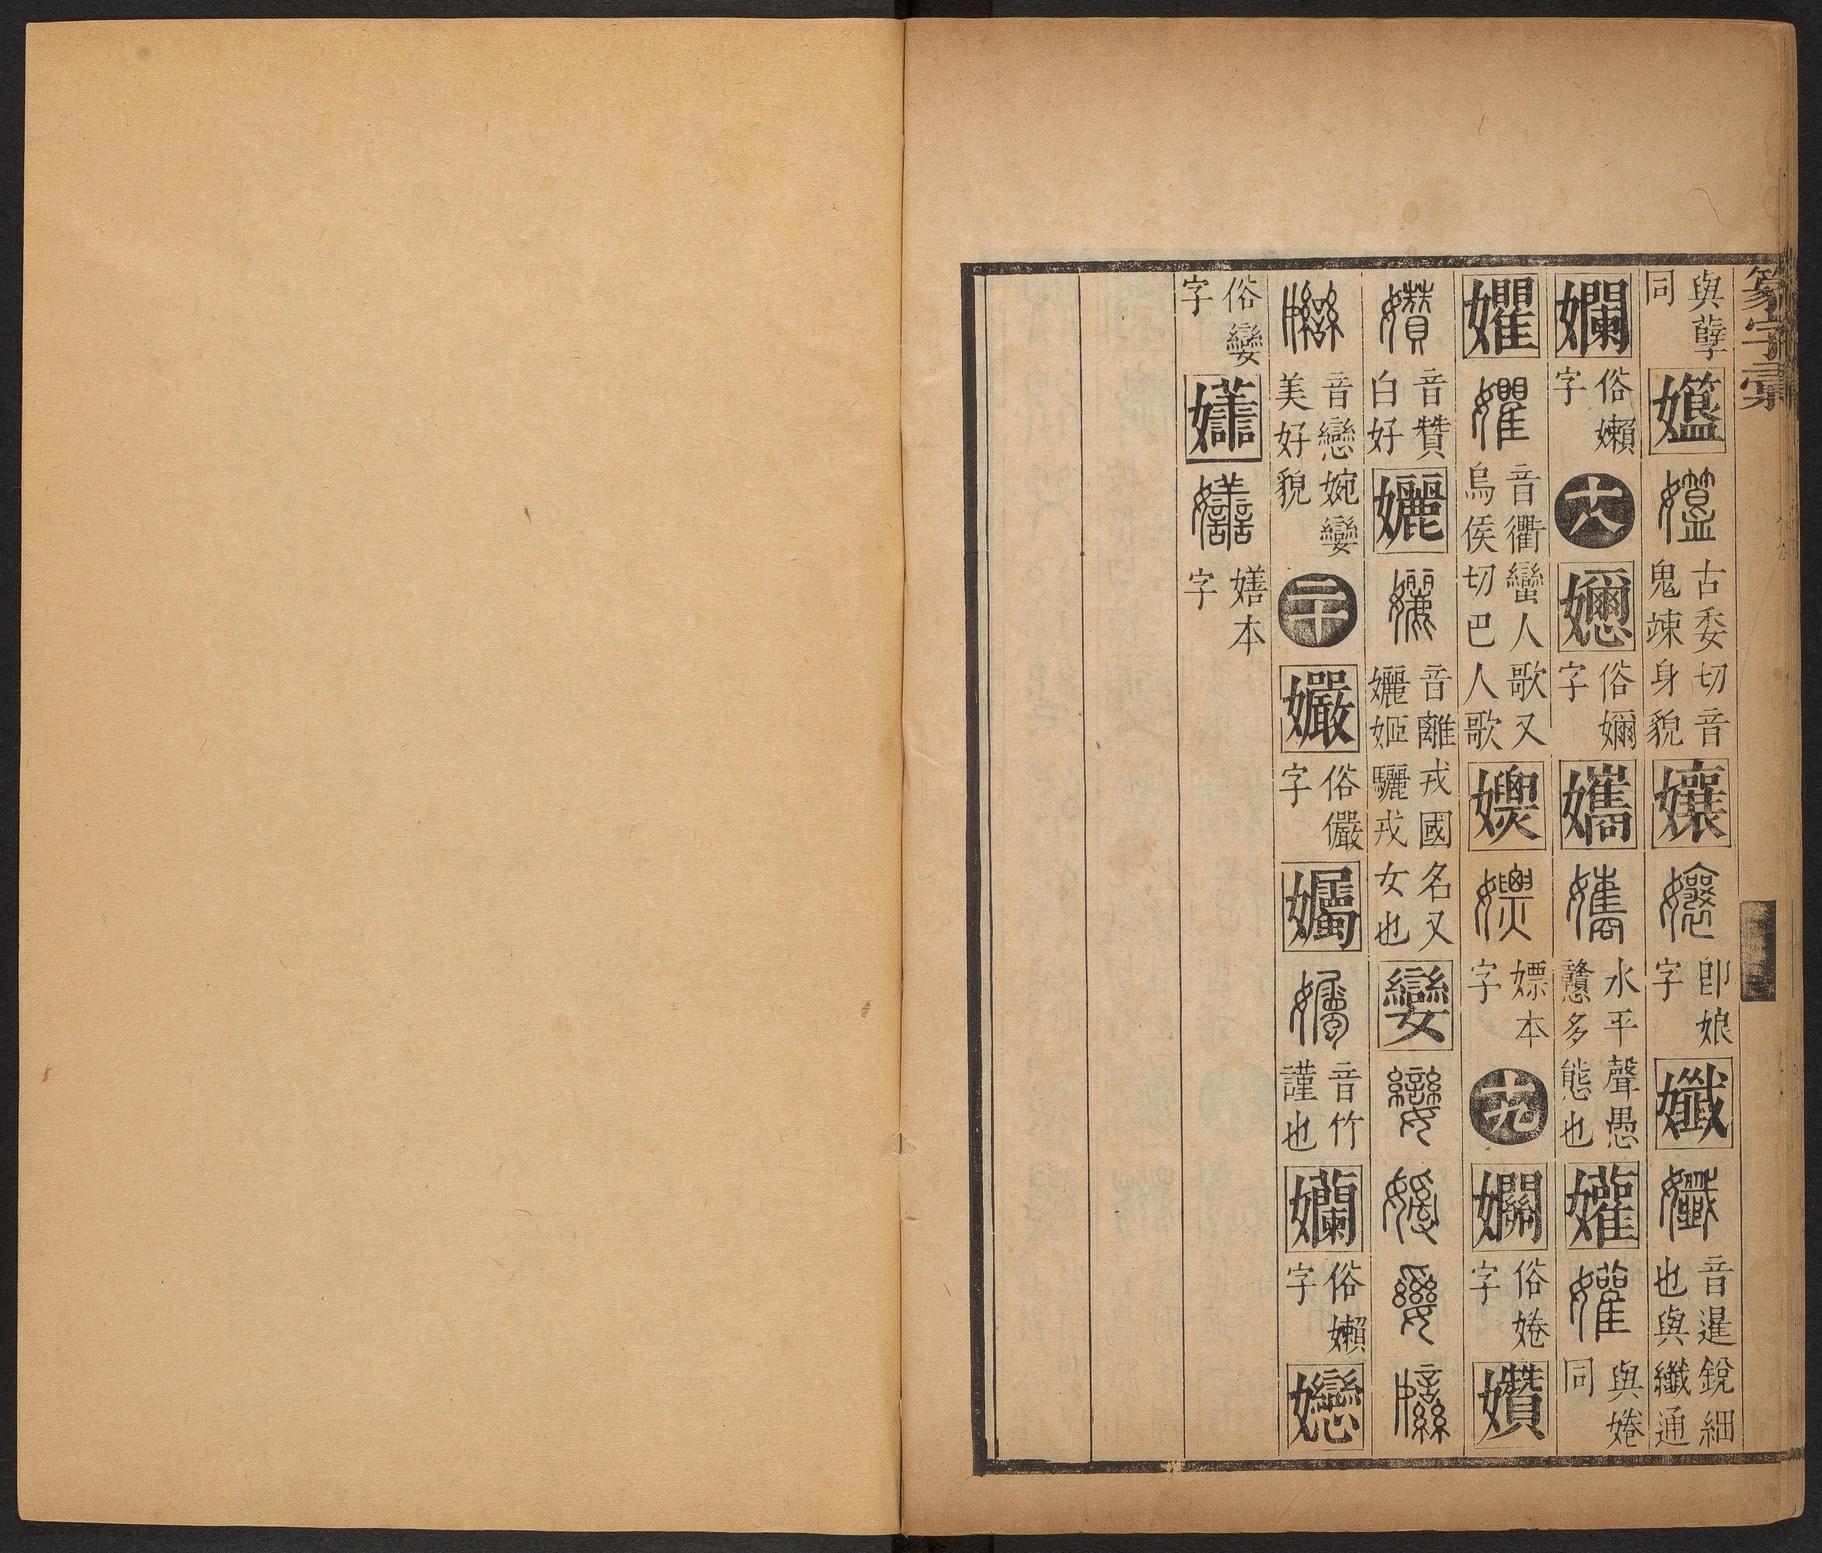 篆字彙
與孽同 古委切音鬼竦身貌 孃 即娘字 孅 音暹銳細也與纖通
孄 俗嬾字 十八 俗嬭字 水平聲愚戇多態也 與婘同
音衢蠻人歌又烏侯切巴人歌 嫖本字 十九 俗婘字
音贊白好 孋 音離戎國名又孋姬驪戎女也 孌
音戀婉孌美好貌 二十 孍 俗儼字 孎 音竹謹也 俗嬾字
俗孌字 嫸本字